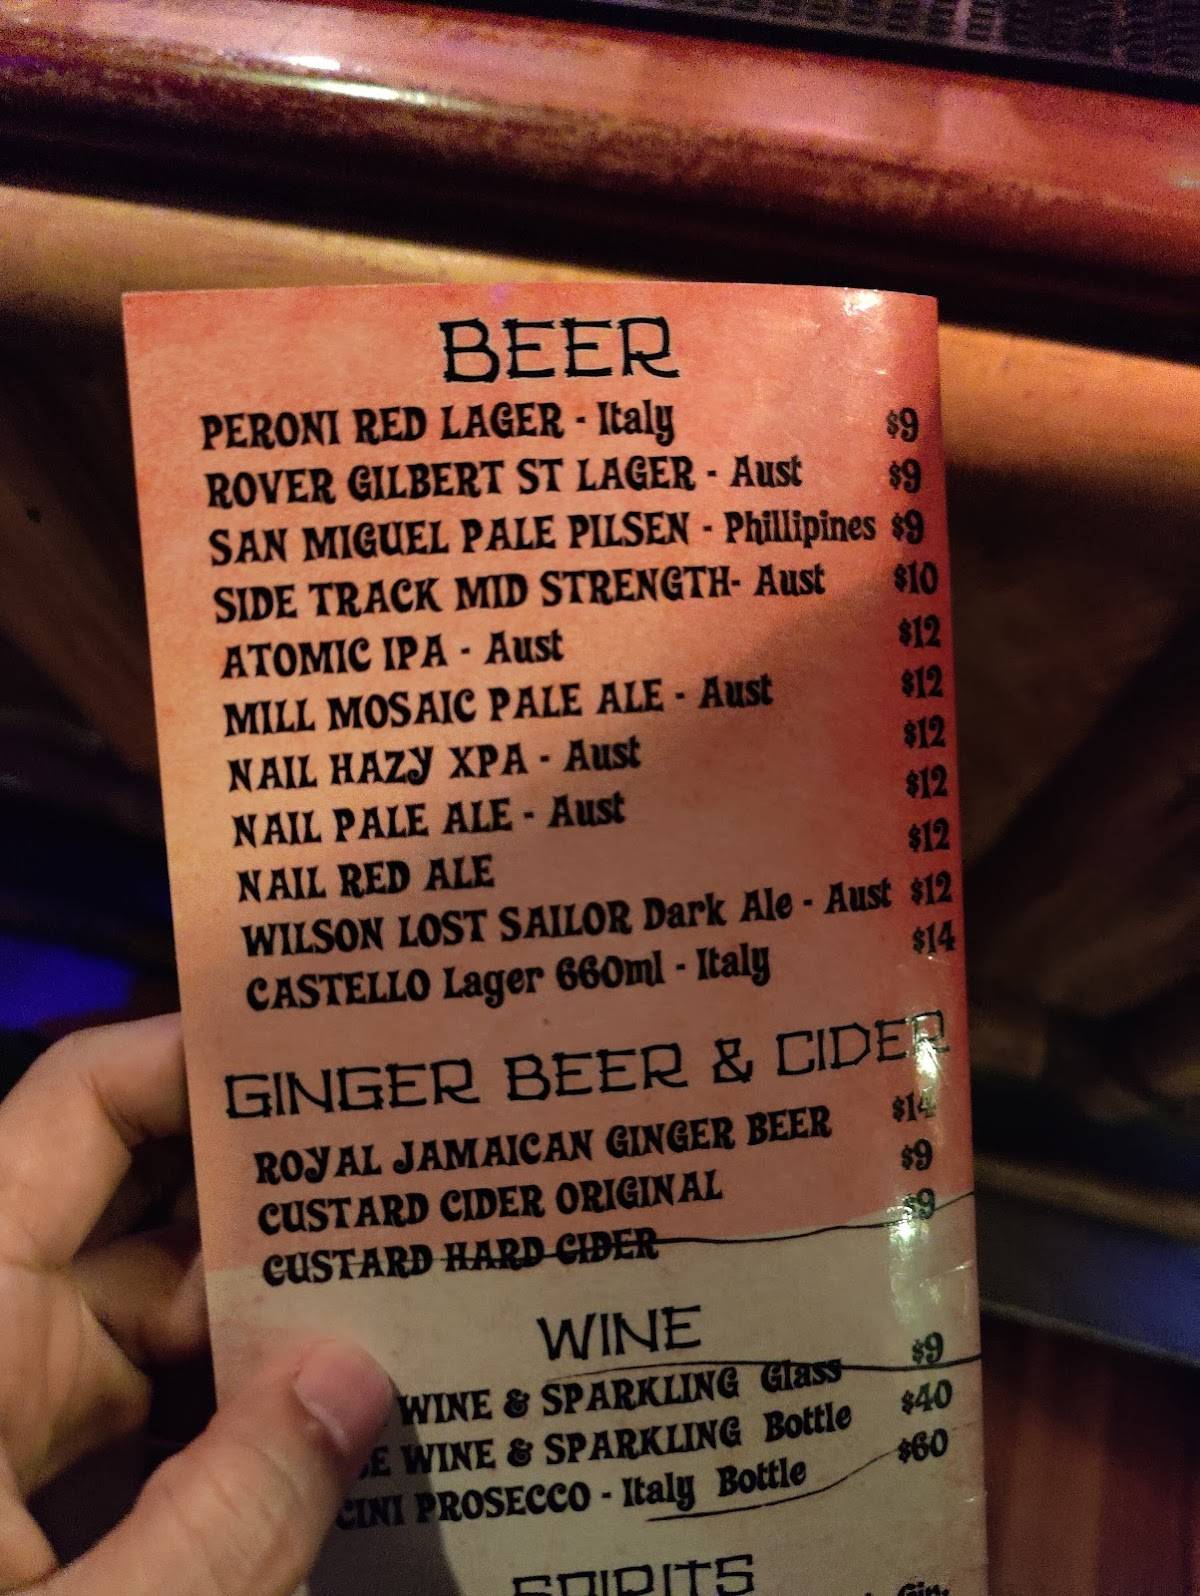 BEER
PERONI RED LAGER - Italy $9
ROVER GILBERT ST LAGER - Aust $9
SAN MIGUEL PALE PILSEN - Phillipines $9
SIDE TRACK MID STRENGTH- Aust $10
ATOMIC IPA - Aust $12
MILL MOSAIC PALE ALE - Aust $12
NAIL HAZY XPA - Aust $12
NAIL PALE ALE - Aust $12
NAIL RED ALE $12
WILSON LOST SAILOR Dark Ale - Aust $12
CASTELLO Lager 660ml - Italy $14
GINGER BEER & CIDER
ROYAL JAMAICAN GINGER BEER $14
CUSTARD CIDER ORIGINAL $9
CUSTARD HARD CIDER $9
WINE
WINE & SPARKLING Glass $9
WINE & SPARKLING Bottle $40
PROSECCO - Italy Bottle $60
SPIRITS
Gin,